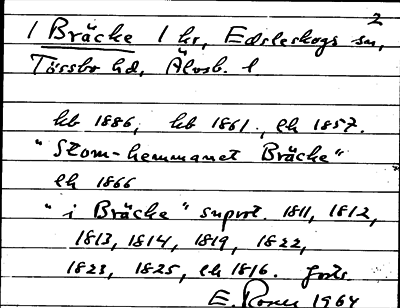 2
1 Bräcke 1 hr, Edsleskogs sn,
Tössbo hd, Älvsb. l
hb 1886, hb 1861, eh 1857.
"Stom-hemmanet Bräcke"
eh 1866
"i Bräcke" suprt. 1811, 1812,
1813, 1814, 1819, 1822,
1823, 1825, eh 1816. forts
E. 1964